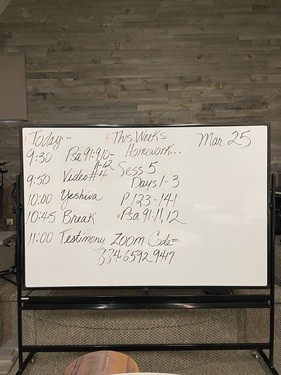 Today..
9:30 Psa 91:9,10-
11-12
9:50 Video #4
10:00 Yeshiva
10:45 Break
11:00 Testimony
This Week's
Homework...
Sess 5
Days 1-3
P 123-141
Psa 91:11,12
Zoom Code=
334 6592 9417
Mar 25